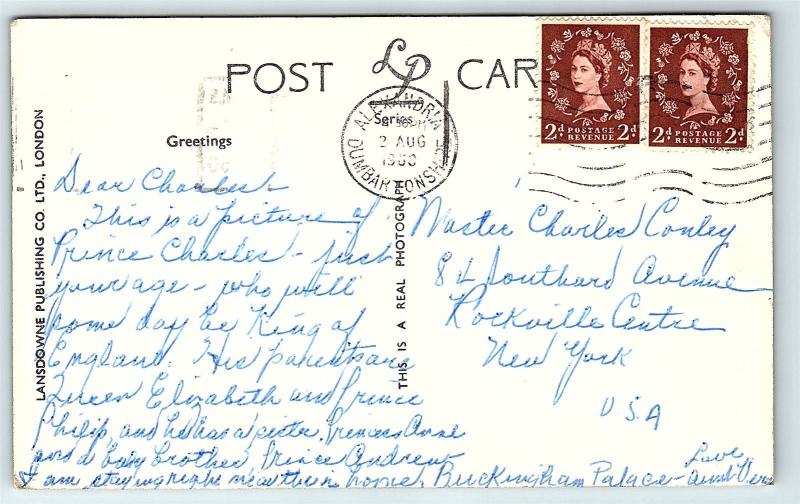 POST CARD
LP
Series
Greetings
ALEXANDRIA
2 AUG
1960
DUMBARTONSHIRE
2d POSTAGE REVENUE 2d
2d POSTAGE REVENUE 2d
LANSDOWNE PUBLISHING CO. LTD., LONDON
THIS IS A REAL PHOTOGRAPH
Dear Charles
This is a picture of
Prince Charles - just
your age - who will
some day be King of
England. His parents are
Queen Elizabeth and Prince
Philip, and he has a sister, Princess Anne
and a baby brother, Prince Andrew
I am staying right near their home, Buckingham Palace -
Love,
Aunt Vera
Master Charles Conley
84 Southard Avenue
Rockville Centre
New York
U.S.A